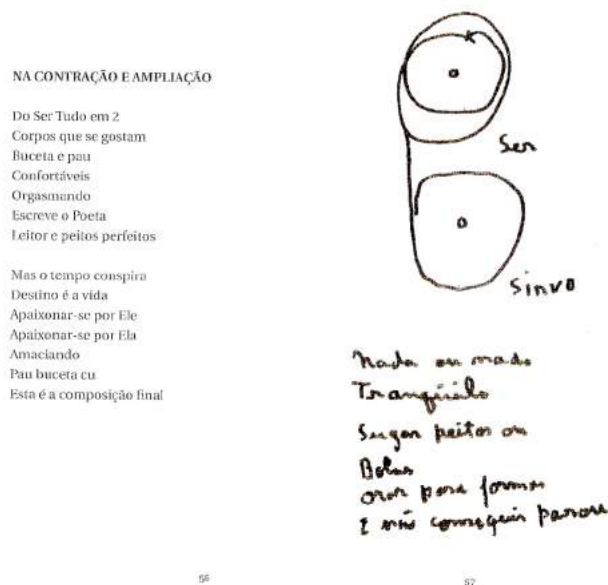 NA CONTRAÇÃO E AMPLIAÇÃO
Do Ser Tudo em 2
Corpos que se gostam
Buceta e pau
Confortáveis
Orgasmando
Escreve o Poeta
Leitor e peitos perfeitos
Mas o tempo conspira
Destino é a vida
Apaixonar-se por Ele
Apaixonar-se por Ela
Amaciando
Pau buceta cu
Esta é a composição final
56
Ser
Sinvo
Nada ou
Tranqüilo
Sugar peitos ou
Bolas
para formar
E não conseguir
57